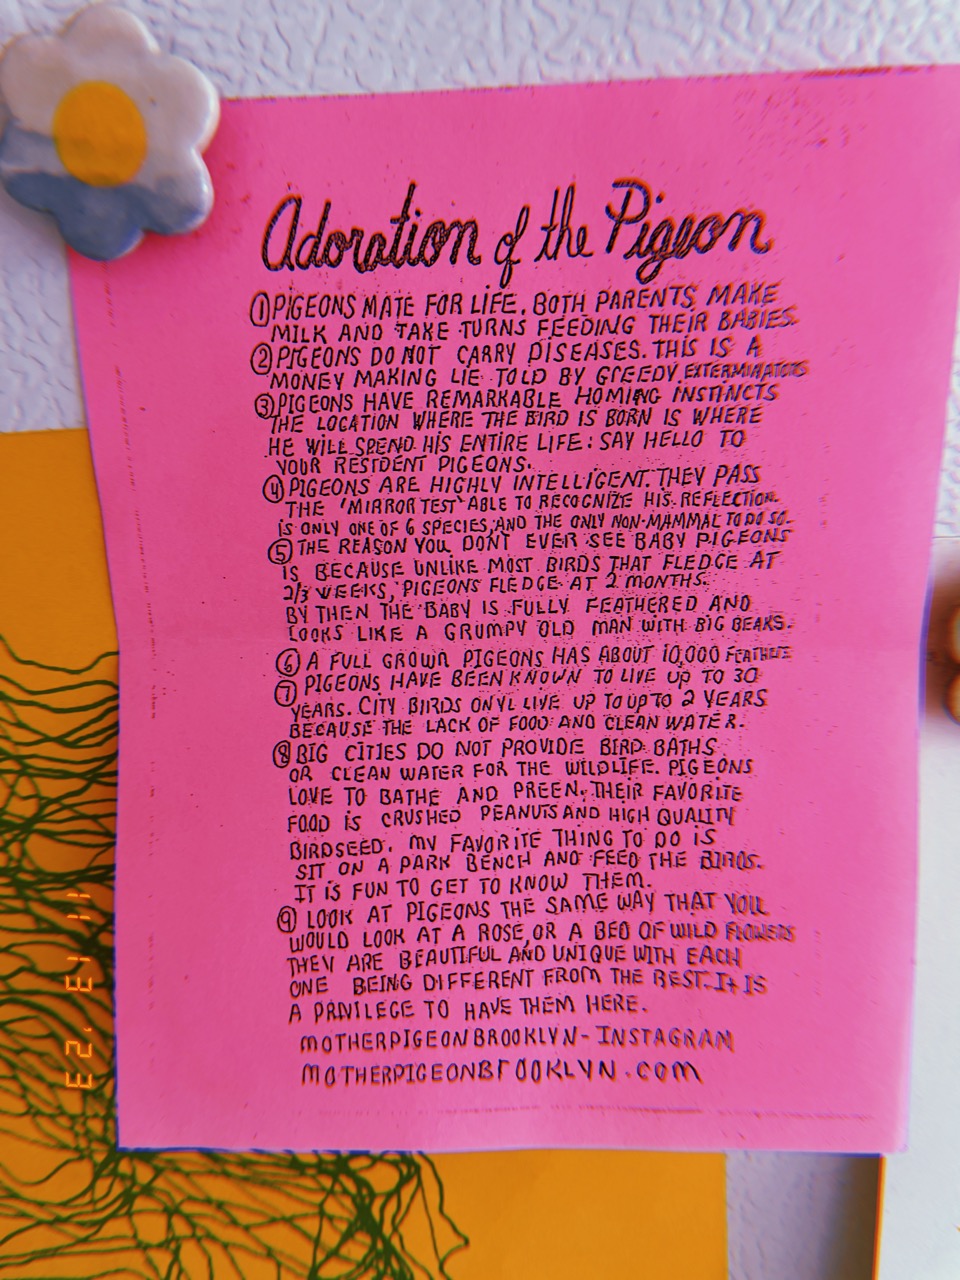 Adoration of the Pigeon
① PIGEONS MATE FOR LIFE. BOTH PARENTS MAKE
MILK AND TAKE TURNS FEEDING THEIR BABIES.
② PIGEONS DO NOT CARRY DISEASES. THIS IS A
MONEY MAKING LIE TOLD BY GREEDY EXTERMINATORS
③ PIGEONS HAVE REMARKABLE HOMING INSTINCTS
THE LOCATION WHERE THE BIRD IS BORN IS WHERE
HE WILL SPEND HIS ENTIRE LIFE: SAY HELLO TO
YOUR RESIDENT PIGEONS.
④ PIGEONS ARE HIGHLY INTELLIGENT. THEY PASS
THE 'MIRROR TEST' ABLE TO RECOGNIZE HIS REFLECTION.
IS ONLY ONE OF 6 SPECIES, AND THE ONLY NON-MAMMAL TO DO SO.
⑤ THE REASON YOU DONT EVER SEE BABY PIGEONS
IS BECAUSE UNLIKE MOST BIRDS THAT FLEDGE AT
2/3 WEEKS, PIGEONS FLEDGE AT 2 MONTHS.
BY THEN THE BABY IS FULLY FEATHERED AND
LOOKS LIKE A GRUMPY OLD MAN WITH BIG BEAKS.
⑥ A FULL GROWN PIGEONS HAS ABOUT 10,000 FEATHERS
⑦ PIGEONS HAVE BEEN KNOWN TO LIVE UP TO 30
YEARS. CITY BIIRDS ONYL LIVE UP TO UP TO 2 YEARS
BECAUSE THE LACK OF FOOD AND CLEAN WATER.
⑧ BIG CITIES DO NOT PROVIDE BIRD BATHS
OR CLEAN WATER FOR THE WILDLIFE. PIGEONS
LOVE TO BATHE AND PREEN. THEIR FAVORITE
FOOD IS CRUSHED PEANUTS AND HIGH QUALITY
BIRDSEED. MY FAVORITE THING TO DO IS
SIT ON A PARK BENCH AND FEED THE BIRDS.
IT IS FUN TO GET TO KNOW THEM.
⑨ LOOK AT PIGEONS THE SAME WAY THAT YOU
WOULD LOOK AT A ROSE, OR A BED OF WILD FLOWERS
THEY ARE BEAUTIFUL AND UNIQUE WITH EACH
ONE BEING DIFFERENT FROM THE REST. It IS
A PRIVILEGE TO HAVE THEM HERE.
MOTHERPIGEONBROOKLYN - INSTAGRAM
MOTHERPIGEONBROOKLYN.COM
11 13 '23